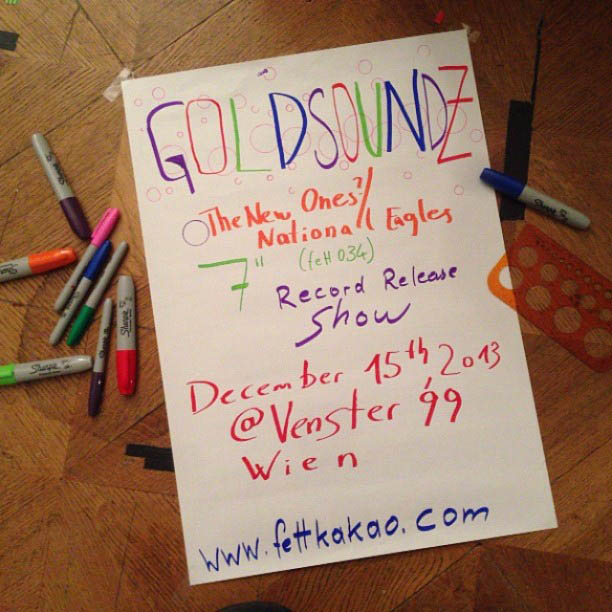 GOLDSOUNDZ
The New Ones?/
National Eagles
7" (fett 034)
Record Release
Show
December 15th, 2013
@ Venster 99
Wien
www.fettkakao.com
Sharpie
Sharpie
Sharpie